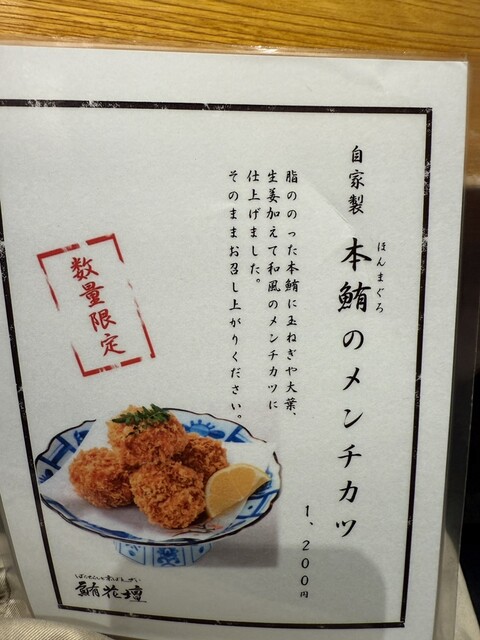 自家製 本鮪のメンチカツ
ほんまぐろ
脂ののった本鮪に玉ねぎや大葉、
生姜加えて和風のメンチカツに
仕上げました。
そのままお召し上がりください。
1、200円
数量限定
鮪花壇